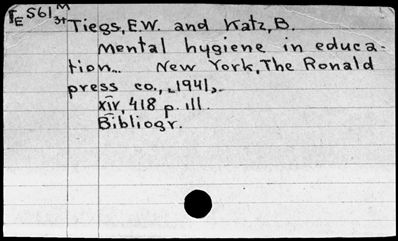 TE S61 M
3t
Tiegs, E.W. and Katz, B.
Mental hygiene in educa-
tion... New York, The Ronald
press co., [1941].
xiv, 418 p. ill.
Bibliogr.